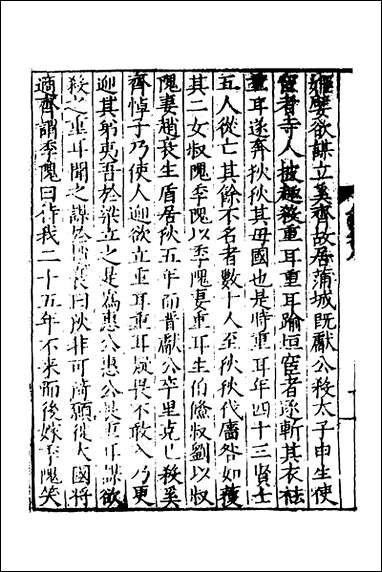 姬嬖欲謀立奚齊故居蒲城既獻公殺太子申生使
宦者寺人披趣殺重耳重耳踰垣宦者逐斬其衣袪
重耳遂奔狄狄其母國也是時重耳年四十三賢士
五人從亡其餘不名者數十人至狄狄伐廧咎如獲
其二女叔隗季隗以季隗妻重耳生伯儵叔劉以叔
隗妻趙衰生盾居狄五年而晉獻公卒里克已殺奚
齊悼子乃使人迎欲立重耳重耳疑畏不敢入乃更
迎其弟夷吾於梁立之是為惠公惠公基重耳謀欲
殺之重耳聞之謀於趙衰曰狄非可蔪願從大國將
適齊謂季隗曰待我二十五年不來而後嫁季隗笑